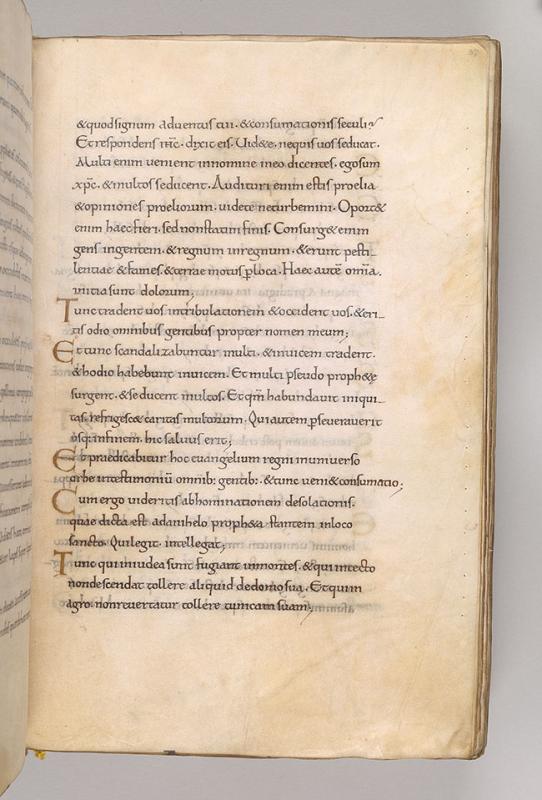 &quodsignum aduentus tui · &consumationis seculi;
Etrespondens ihc̄ · dixit eis · Uid&e · nequis uos seducat ·
Multi enim uenient innomine meo dicentes · egosum
xp̄c · &multos seducent · Audituri enim estis proelia
&opiniones proeliorum · uidete neturbemini · Oport&
enim haecfieri · sed nonstatim finis · Consurg& enim
gens ingentem · &regnum inregnum · &erunt pesti-
lentiae &fames · &terrae motus p̲loca · Haec autē om̄a ·
initia sunt dolorum;
Tunc tradent uos intribulationem &occident uos · &eri-
tis odio omnibus gentibus propter nomen meum;
Et tunc scandalizabuntur multi · &inuicem tradent ·
&hodio habebunt inuicem · Et multi pseudo proph&ę
surgent · &seducent multos · Et qm̄ habundauit iniqui-
tas · refrigesc& caritas multorum · Quiautem p̲seuerauerit
usq; infinem · hic saluus erit;
Et praedicabitur hoc euangelium regni inuniuerso
orbe intestimoniū omnib; gentib; · &tunc ueni& consumatio;
Cum ergo uideritis abhominationem desolationis ·
quae dicta est adanihelo proph&a stantem inloco
sancto · Quilegit · intellegat;
Tunc qui iniudea sunt fugiant inmontes · &qui intecto
nondescendat tollere aliquid dedomo sua · Etqui in
agro nonreuertatur tollere tunicam suam;